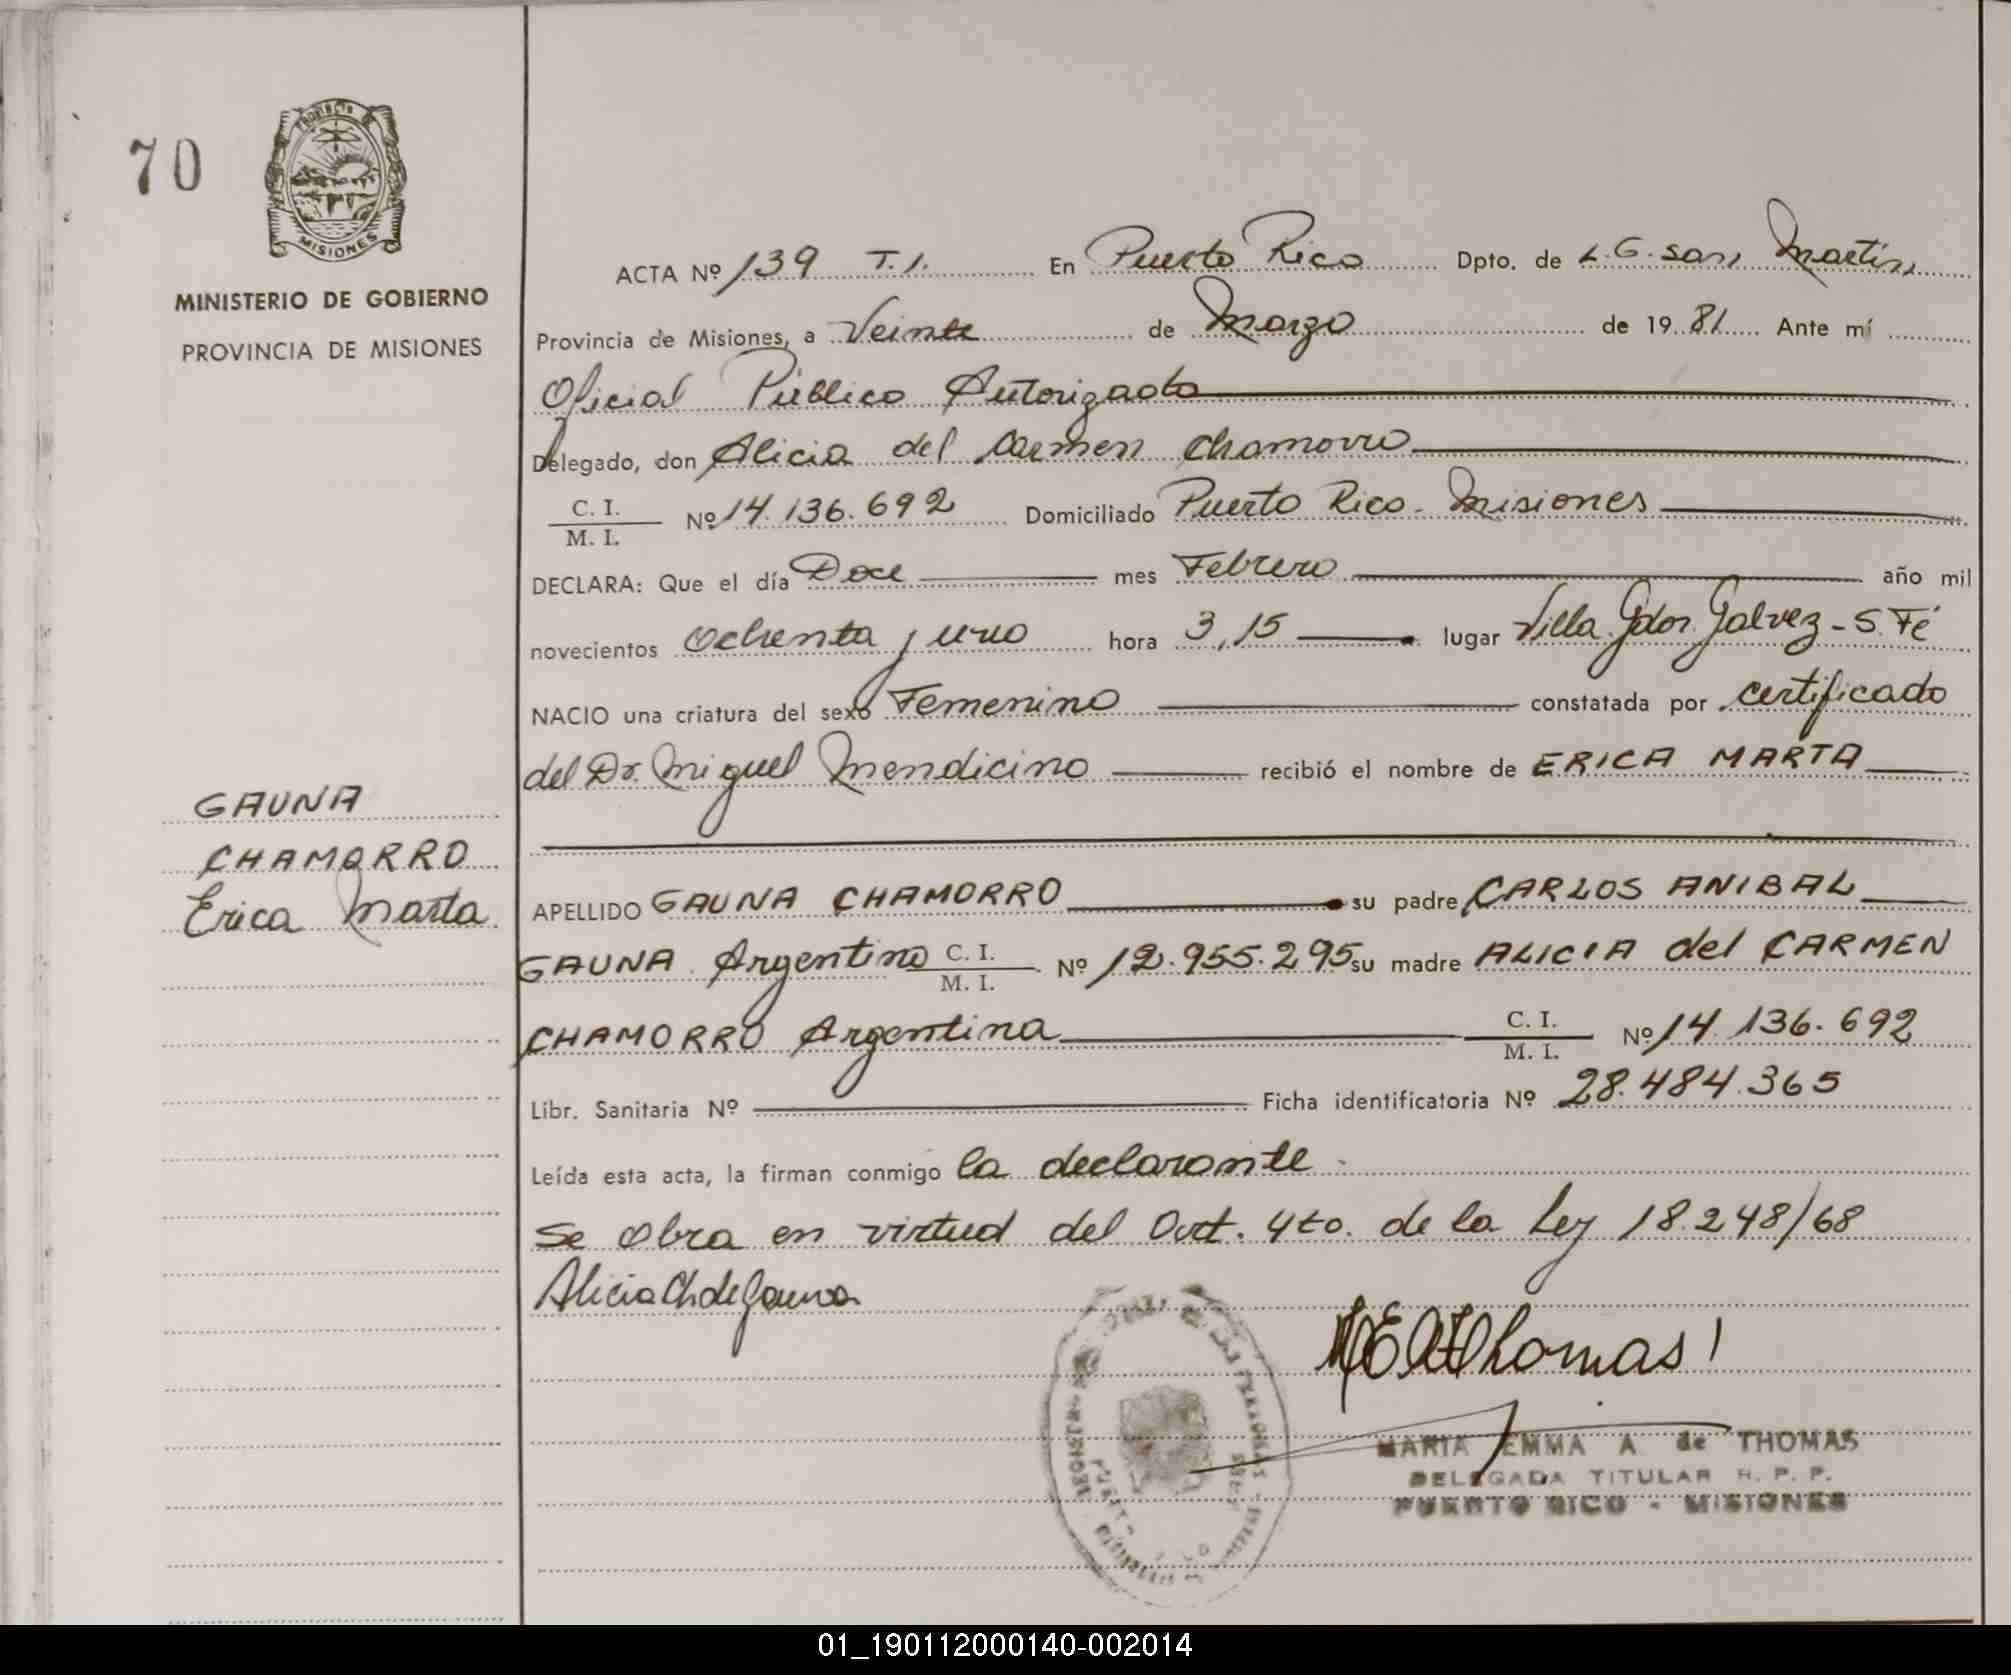 70
MISIONES
MINISTERIO DE GOBIERNO
PROVINCIA DE MISIONES
ACTA Nº 139 T.1. En Puerto Rico Dpto. de L.G.San Martín
Provincia de Misiones, a Veinte de Marzo de 19 81 Ante mí
Oficial Público Autorizado
Delegado, don Alicia del Carmen Chamorro
C. I. / M. I. Nº 14.136.692 Domiciliado Puerto Rico - Misiones
DECLARA: Que el día Doce mes Febrero año mil
novecientos ochenta y uno hora 3,15 lugar Villa Gdor. Galvez - S. Fé
NACIO una criatura del sexo Femenino constatada por certificado
del Dr. Miguel Mendicino recibió el nombre de ERICA MARTA
GAUNA
CHAMORRO
Erica Marta
APELLIDO GAUNA CHAMORRO su padre CARLOS ANIBAL
GAUNA Argentino C. I. / M. I. Nº 12.955.295 su madre ALICIA del CARMEN
CHAMORRO Argentina C. I. / M. I. Nº 14.136.692
Libr. Sanitaria Nº Ficha identificatoria Nº 28.484.365
Leída esta acta, la firman conmigo la declarante.
Se obra en virtud del Art. 4to. de la Ley 18.248/68
Alicia Ch de Gauna
M E A d Thomas
MARIA EMMA A de THOMAS
DELEGADA TITULAR R. P. P.
PUERTO RICO - MISIONES
01_190112000140-002014